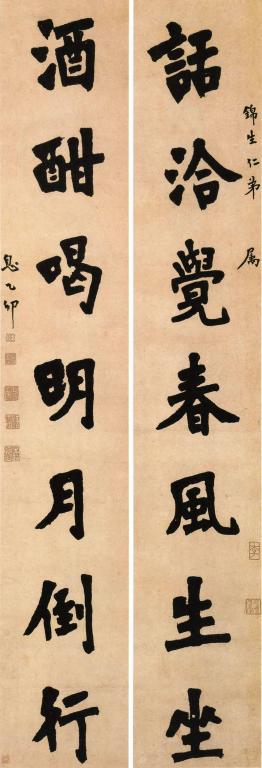 錦生仁弟 属
話洽覺春風生坐
酒酣喝明月倒行
乙卯